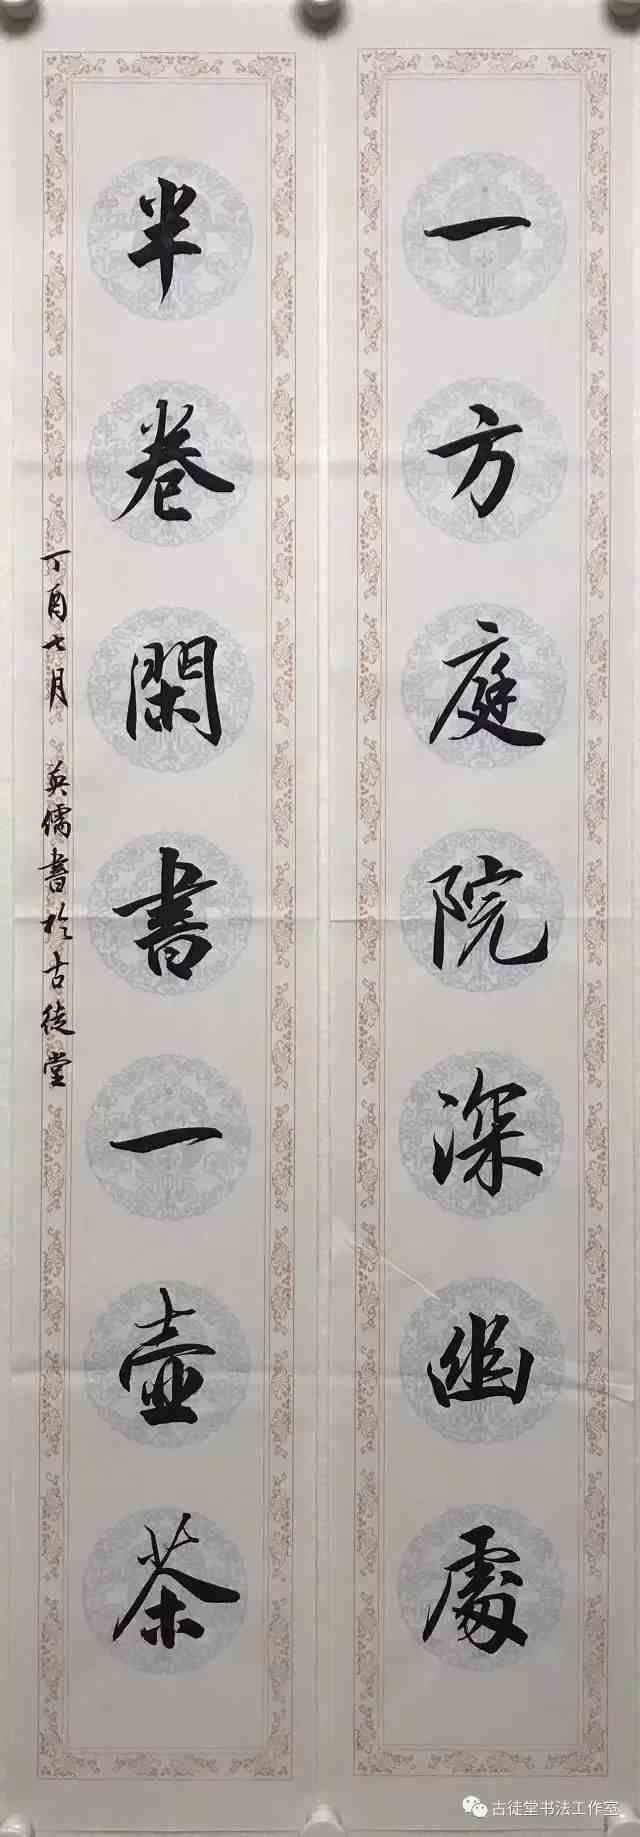 一方庭院深幽處
半卷閑書一壺茶
丁酉七月 英儒書於古徒堂
古徒堂书法工作室